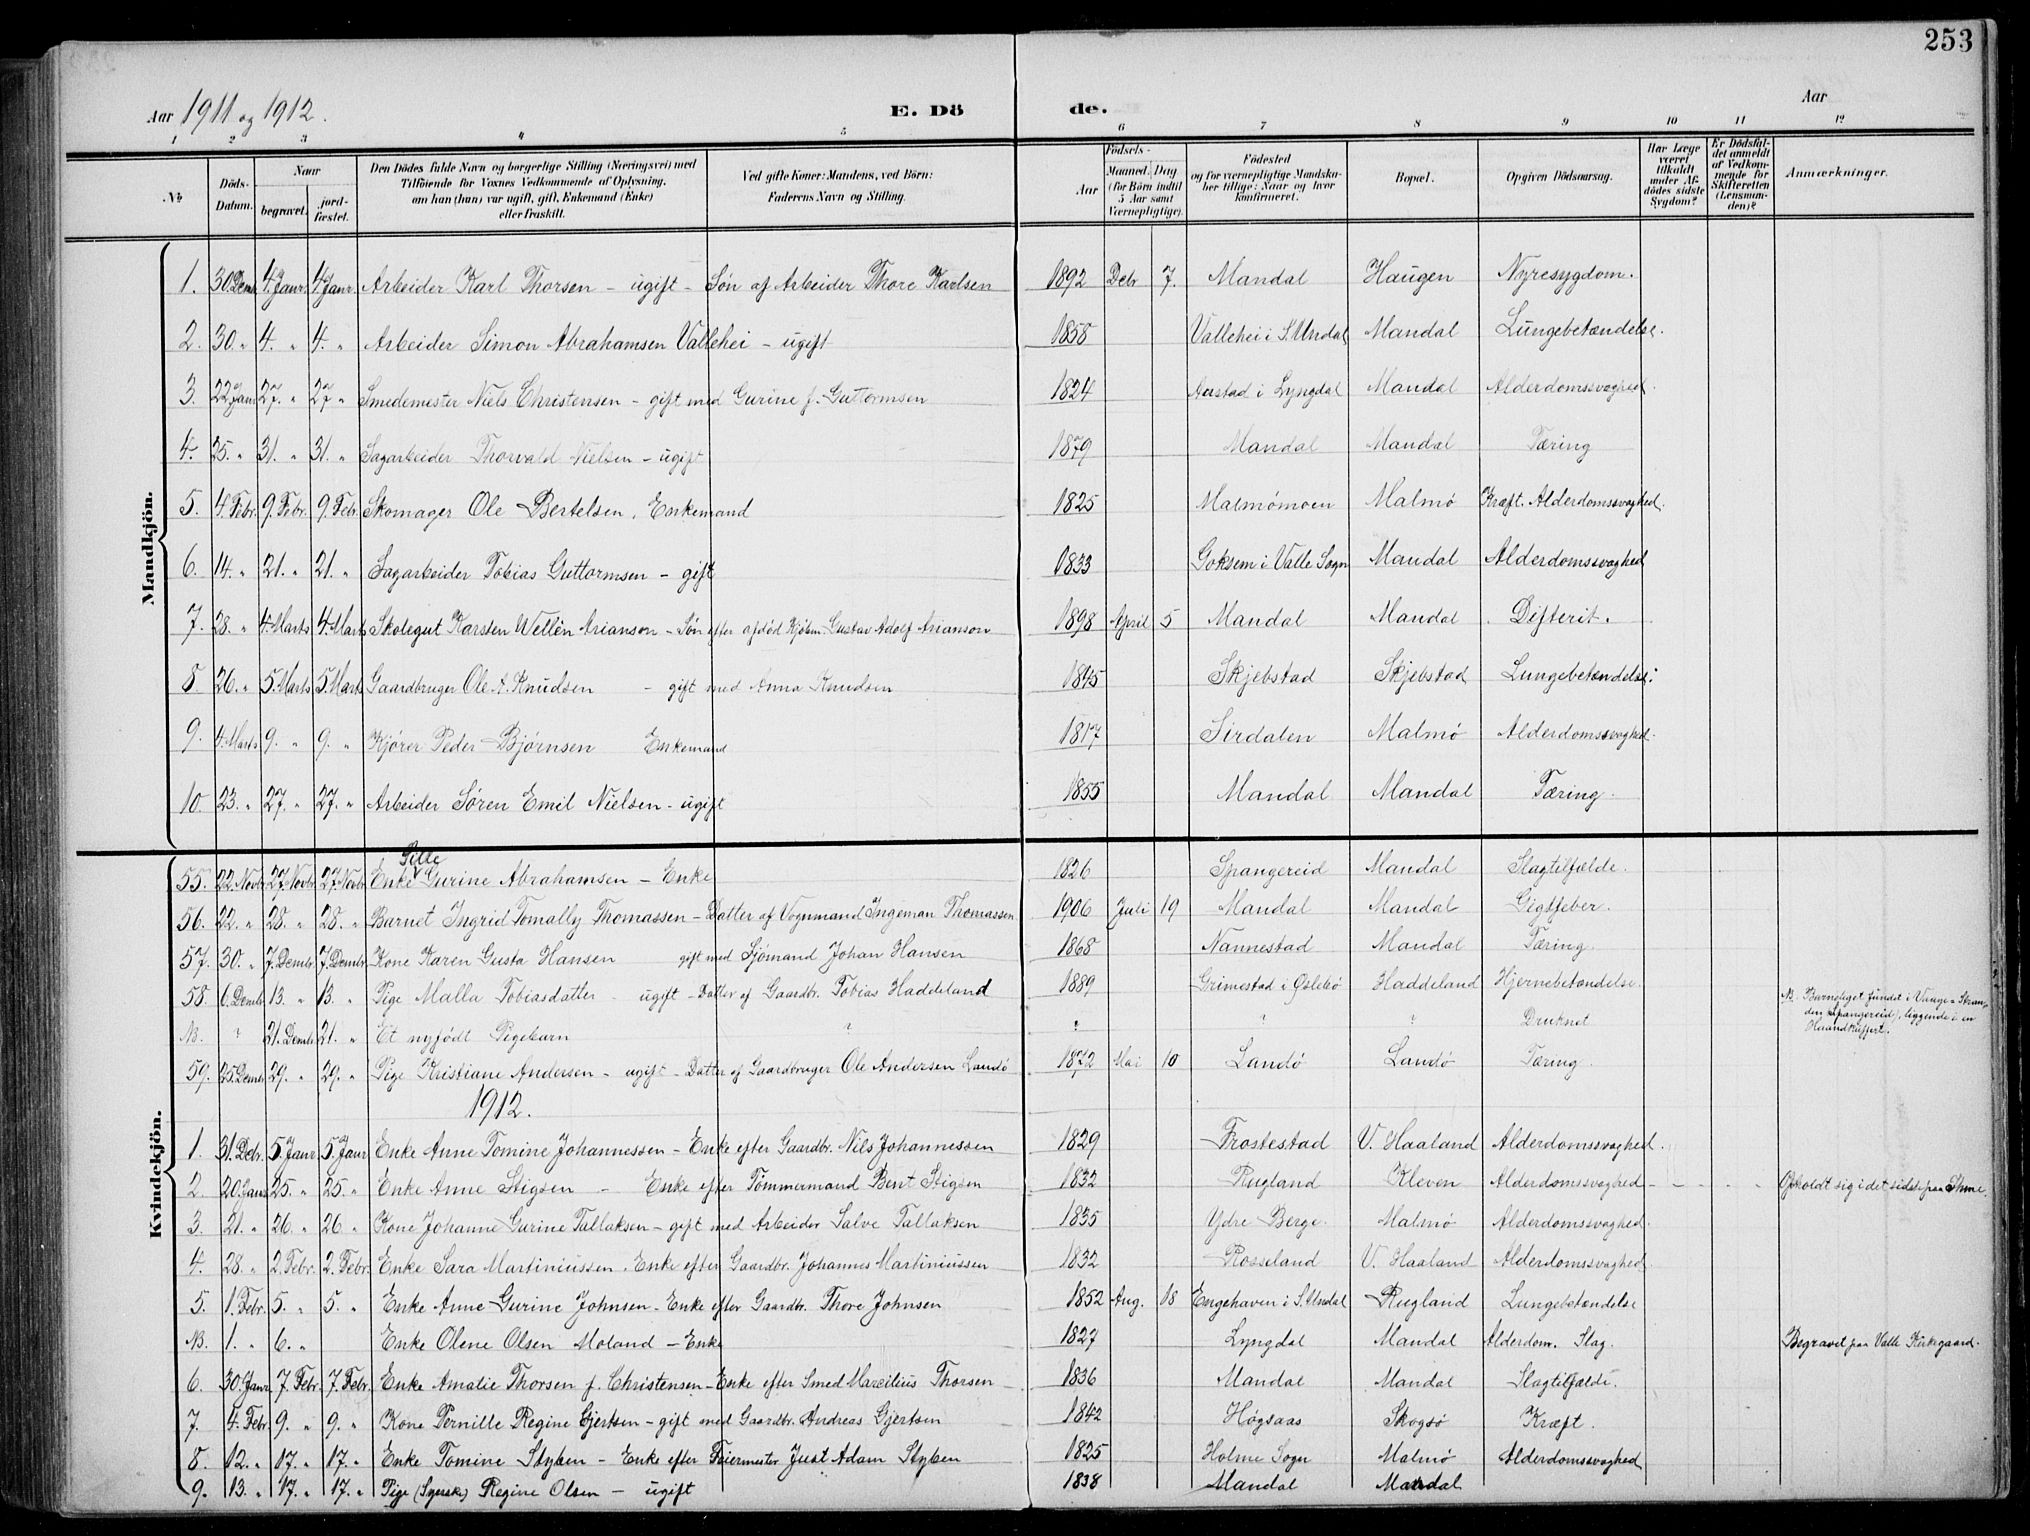 253
Aar 1911 og 1912.
E. Dö de.
Aar
1 2 3 4 5 6 7 8 9 10 11 12
№
Döds-Datum.
Naar
begravet.
jord-fæstet.
Den Dödes fulde Navn og borgerlige Stilling (Næringsvei) med
Tilföiende for Voxnes Vedkommende af Oplysning,
om han (hun) var ugift, gift, Enkemand (Enke)
eller fraskilt.
Ved gifte Koner: Mandens, ved Börn:
Faderens Navn og Stilling.
Födsels-
Aar
Maaned. Dag
(for Börn indtil
5 Aar samt
Værnepligtige).
Födested
og for værnepligtige Mandska-
ber tillige: Naar og hvor
konfirmeret.
Bopæl.
Opgiven Dödsaarsag.
Har Læge
været
tilkaldt
under Af-
dödes sidste
Sygdom?
Er Dödsfal-
det anmeldt
af Vedkom-
mende for
Skifteretten
(Lensman-
den)?
Anmærkninger.
Mandkjön.
1. 30. Dembr 4. Janr. 4. Janr. Arbeider Karl Thorsen – ugift – Søn af Arbeider Thore Karlsen 1892 Debr 7. Mandal Haugen Nyresygdom.
2. 30. " 4. " 4. " Arbeider Simon Abrahamsen Vallehei – ugift 1858 Vallehei i S. Undal Mandal Lungebetændelse.
3. 22. Janr 27. " 27 " Smedemester Niels Christensen – gift med Gurine f. Guttormsen 1824 Austad i Lyngdal Mandal Alderdomssvaghed.
4. 25. " 31. " 31. " Sagarbeider Thorvald Nielsen – ugift 1879 Mandal Mandal Tæring
5. 4. Febr. 9. Febr. 9. Febr. Skomager Ole Bertelsen. Enkemand 1825 Malmømoen Malmø Kræft. Alderdomssvaghed.
6. 14. " 21. " 21. " Sagarbeider Tobias Guttormsen – gift 1833 Goksem i Valle Sogn Mandal Alderdomssvaghed
7. 28. " 4. Marts 4. Marts Skolegut Karsten Wellèn Arianson – Søn efter afdød Kjøbm. Gustav Adolf Arianson 1898 April 5 Mandal Mandal Difterit.
8. 26. " 5. Marts 5. Marts Gaardbruger Ole A. Knudsen – gift med Anna Knudsen 1845 Skjebstad Skjebstad Lungebetændelse.
9. 4. Marts 9. " 9. " Kjører Peder Bjørnsen Enkemand 1817 Sirdalen Malmø Alderdomssvaghed.
10. 23. " 27. " 27. " Arbeider Søren Emil Nielsen – ugift 1855 Mandal Mandal Tæring.
Kvindekjön.
Pille
55. 22. Novbr 27. Novbr. 27. Novbr. Enke Gurine Abrahamsen – Enke 1826 Spangereid Mandal Slagtilfælde.
56. 22. " 28. " 28. " Barnet Ingrid Tomally Thomassen – Datter af Vognmand Ingeman Thomassen 1906 Juli 19 Mandal Mandal Gigtfeber.
57. 30. " 7. Dembr. 7. Dembr. Kone Karen Gusta Hansen gift med Sjømand Johan Hansen 1868 Nannestad Mandal Tæring.
58. 6. Dembr 13. " 13. " Pige Malla Tobiasdatter – ugift – Datter af Gaardbr. Tobias Haddeland 1889 Grimestad i Øslebø Haddeland Hjernebetændelse.
NB. ? 21. Dembr 21. " Et nyfødt Pigebarn ? ? ? ? Druknet NB. Barneliget fundet i Vaage-Stran-
den (Spangereid), liggende i en
Haandkuffert.
59. 25. Dembr 29. " 29. " Pige Kristiane Andersen – ugift – Datter af Gaardbruger Ole Andersen Landø 1872 Mai 10 Landø Landø Tæring.
1912.
1. 31. Debr. 5. Janr 5. Janr Enke Anne Tomine Johannessen – Enke efter Gaardbr. Nils Johannessen 1829 Frostestad V. Haaland Alderdomssvaghed.
2. 20. Janr 25. " 25. " Enke Anne Stigsen – Enke efter Tømmermand Bent Stigsen 1832 Rugland Kleven Alderdomssvaghed – – – – Opholdt sig i det sidste paa Ihme.
3. 21. " 26 " 26 " Kone Johanne Gurine Tallaksen – gift med Arbeider Salve Tallaksen 1835 Ydre Berge. Malmø Alderdomssvaghed.
4. 28. " 2. Febr. 2. Febr. Enke Sara Martiniussen. Enke efter Gaardbr. Johannes Martiniussen 1832 Rosseland V. Haaland Alderdomssvaghed.
5. 1. Febr. 5. " 5. " Enke Anne Gurine Johnsen – Enke efter Gaardbr. Thore Johnsen 1852 Aug. 18 Engehaven i S. Undal Rugland Lungebetændelse
NB. 1. " 6. " Enke Olene Olsen Moland – Enke 1827 Lyngdal Mandal Alderdom. Slag. Begravet paa Valle Kirkegaard.
6. 30. Janr 7. Febr. 7. Febr. Enke Amalie Thorsen f. Christensen – Enke efter Smed Marcilius Thorsen 1836 Mandal Mandal Slagtilfælde.
7. 4. Febr 9. " 9. " Kone Pernille Regine Gjertsen – gift med Gaardbr. Andreas Gjertsen 1842 Høgsaas Skogsø Kræft.
8. 12. " 17. " 17. " Enke Tomine Styben – Enke efter Feiermester Just Adam Styben 1825 Holme Sogn Malmø Alderdomssvaghed
9. 13. " 17. " 17. " Pige (Syersk) Regine Olsen – ugift 1838 Mandal Mandal